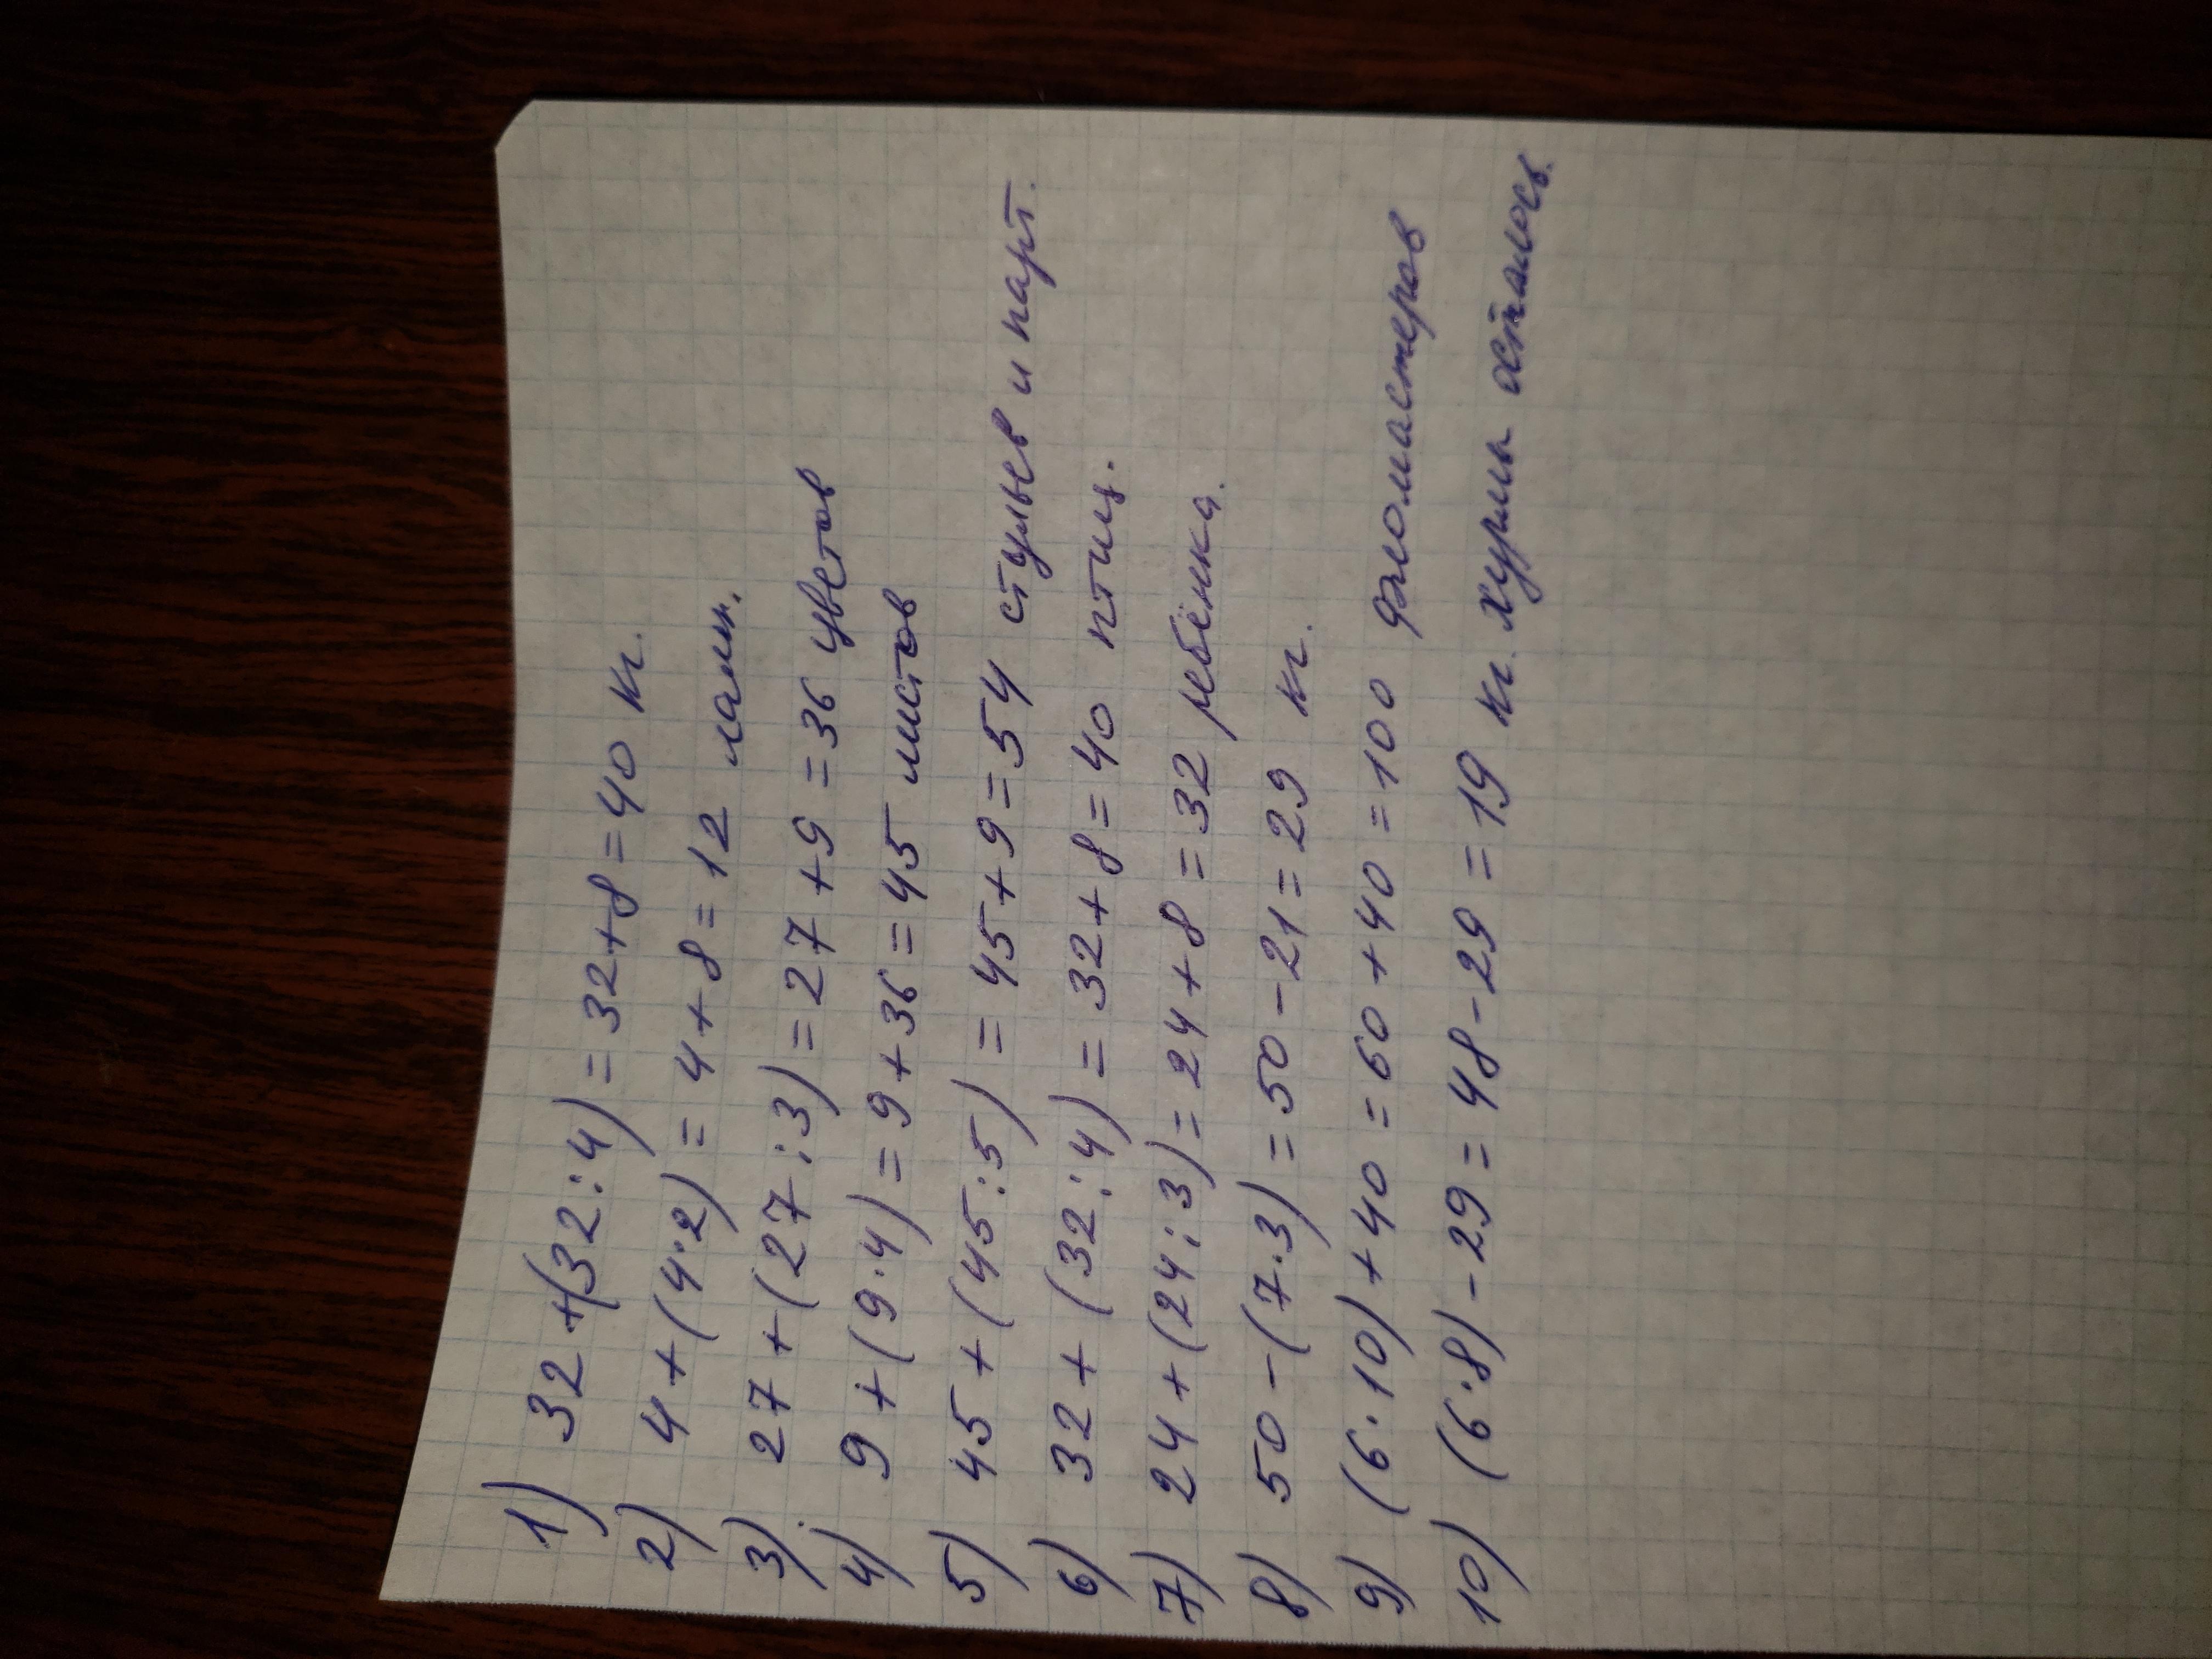 1) 32+(32:4)=32+8=40 кг.
2) 4+(4·2)=4+8=12 ламп.
3) 27+(27:3)=27+9=36 цветов
4) 9+(9·4)=9+36=45 листов
5) 45+(45:5)=45+9=54 стульев и парт.
6) 32+(32:4)=32+8=40 птиц.
7) 24+(24:3)=24+8=32 ребёнка.
8) 50-(7·3)=50-21=29 кг.
9) (6·10)+40=60+40=100 фломастеров
10) (6·8)-29=48-29=19 кг. хурмы осталось.